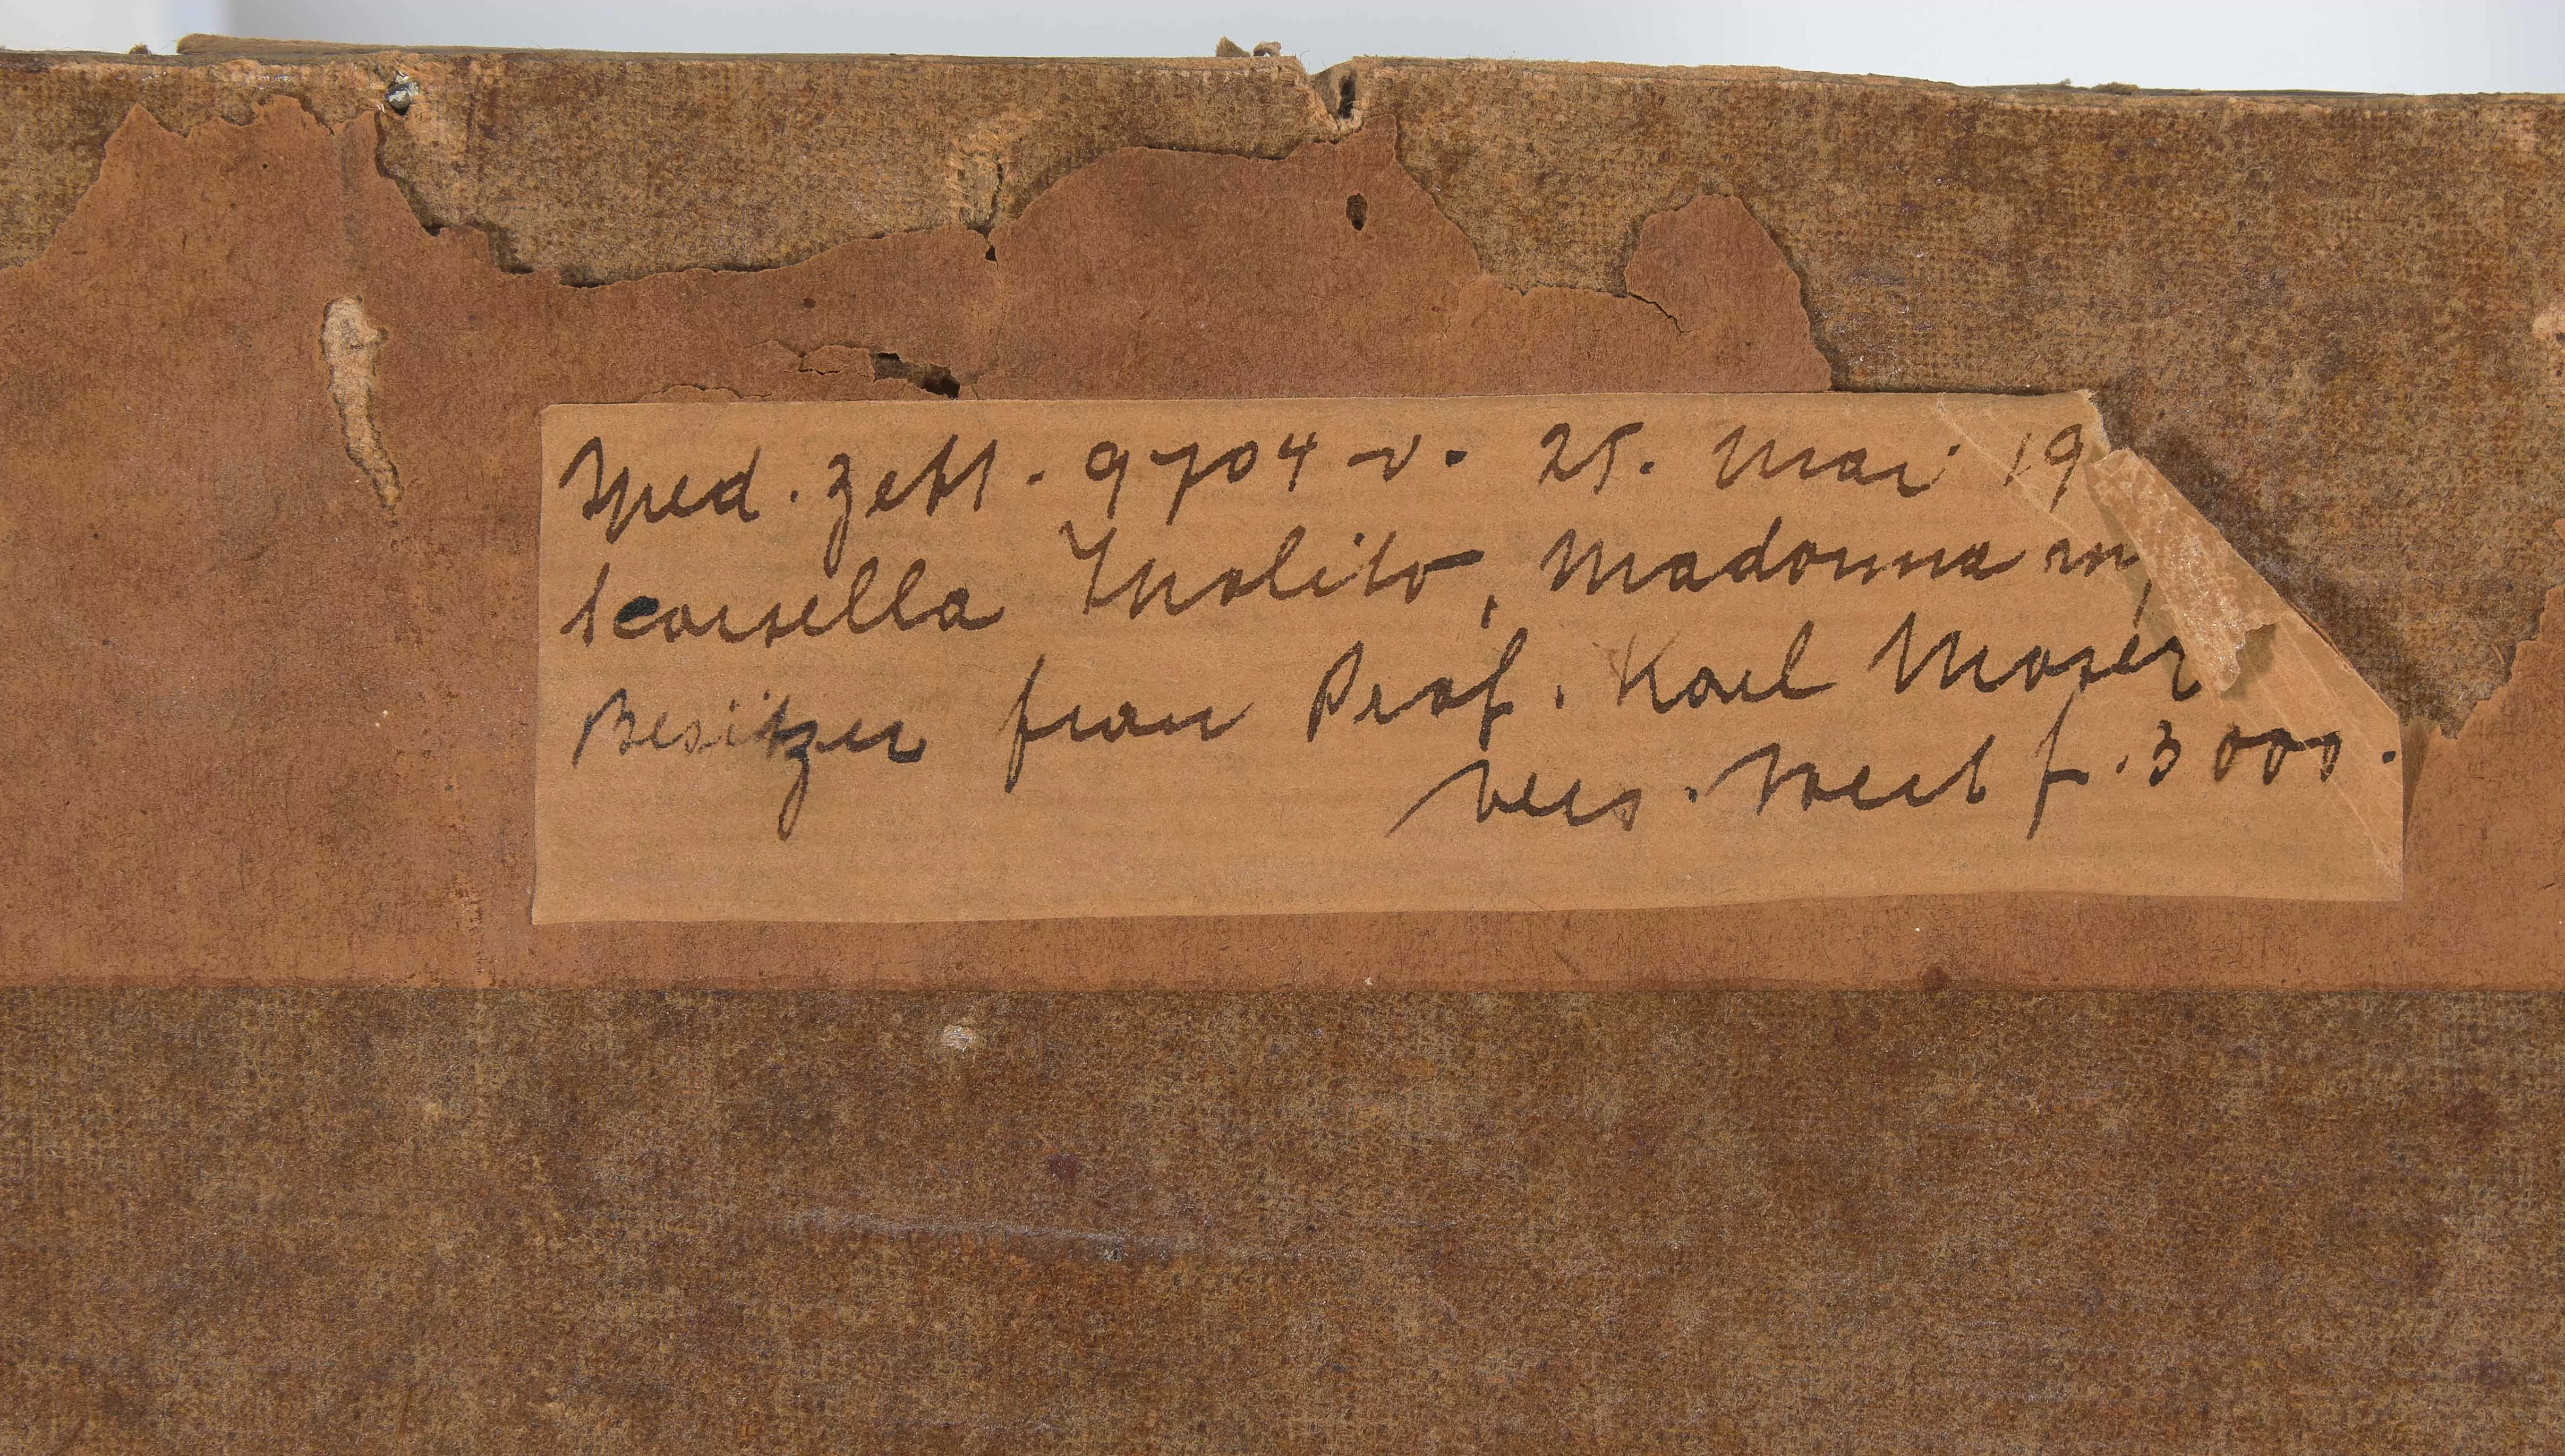 Sped. Zett. 9704 v. 25. Mai 19
Scarsella Ippolito, Madonna m
Besitzer frau Prof. Karl Moser
Vers. Wert f. 3000.